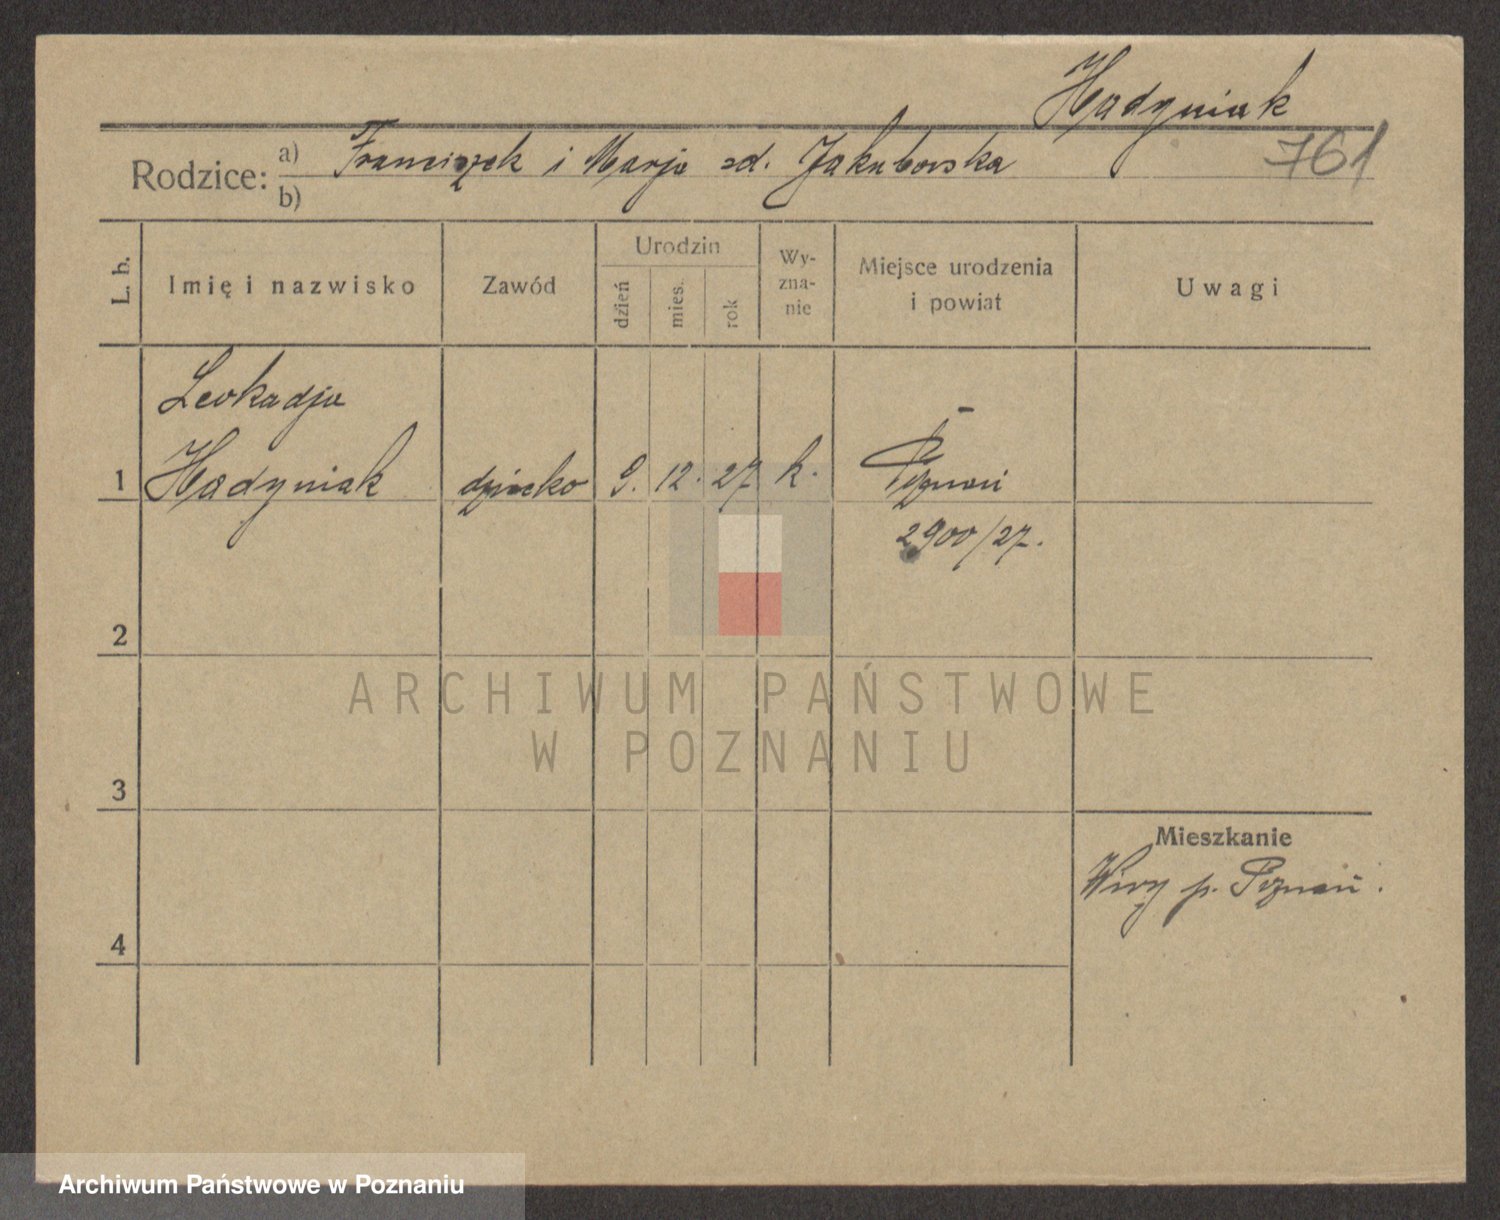 Hądyniak
761
Rodzice: a) Franciszek i Marja zd. Jakubowska
b)
L. b.
Imię i nazwisko
Zawód
Urodzin
dzień
mies.
rok
Wy-
zna-
nie
Miejsce urodzenia
i powiat
Uwagi
Leokadja
1 Hądyniak dziecko 9. 12. 27 k. Poznań
2900/27.
2
3
4
Mieszkanie
Wiry p. Poznań.
ARCHIWUM PAŃSTWOWE
W POZNANIU
Archiwum Państwowe w Poznaniu